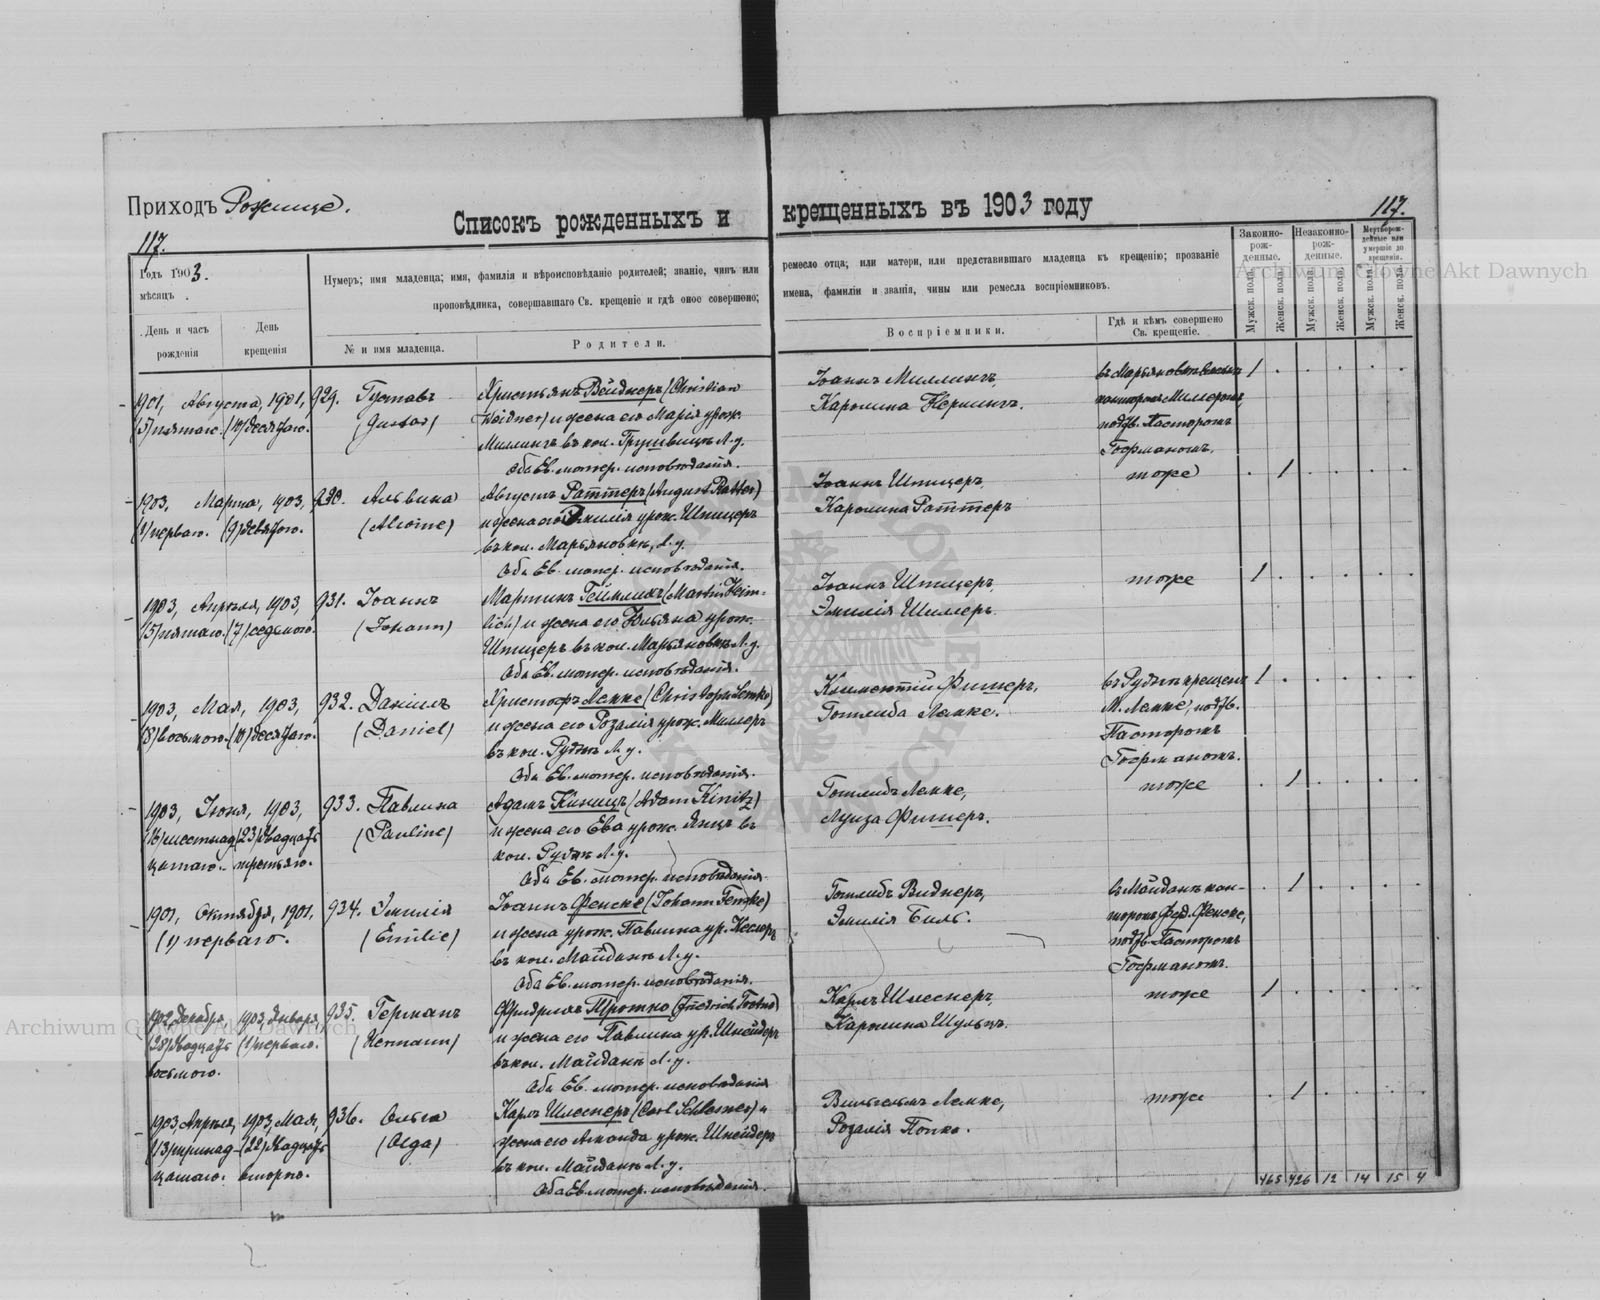 Приходъ Рожище.
Списокъ рожденныхъ и крещенныхъ въ 1903 году
117.
117.
Годъ 1903.
мѣсяцъ .
День и часъ рожденія
День крещенія
Нумеръ; имя младенца; имя, фамилія и вѣроисповѣданіе родителей; званіе, чинъ или ремесло отца; или матери, или представившаго младенца къ крещенію; прозваніе
проповѣдника, совершавшаго Св. крещеніе и гдѣ оное совершено; имена, фамиліи и званія, чины или ремесла воспріемниковъ.
№ и имя младенца.
Родители.
Воспріемники.
Гдѣ и кѣмъ совершено Св. крещеніе.
Законно-рож-денные.
Незаконно-рож-денные.
Мертворож-денные или умершіе до крещенія.
Мужск. пола.
Женск. пола.
Мужск. пола.
Женск. пола.
Мужск. пола.
Женск. пола.
1901, Августа, 1901, 929. Густавъ Христьянъ Вейднеръ (Christian Іоаннъ Миллингъ, 1
(5) пятаго. (10) десятаго. (Gustav) Weidner) и жена его Марія урож. Каролина канторомъ Миллеромъ,
Миллингъ въ кол. Грушвицъ Л.у. подтв. Пасторомъ
Оба Ев. лютер. исповѣданія. Гофманомъ.
1903, Марта, 1903, 930. Альвина Августъ Раттеръ (August Ratter) Іоаннъ Шпицеръ, тоже 1
(1) перваго. (9) девятаго. (Alwine) и жена его Эмилія урож. Шпицеръ Каролина Раттеръ
въ кол. Марьяновкѣ, Л.у.
Оба Ев. лютер. исповѣданія.
1903, Апрѣля, 1903, 931. Іоаннъ Мартинъ Геймлихъ (Martin Heim- Іоаннъ Шпицеръ, тоже 1
(5) пятаго. (7) седьмого. (Johann) lich) и жена его Юльяна урож. Эмилія Шиллеръ.
Шпицеръ въ кол. Марьяновкѣ Л.у.
Оба Ев. лютер. исповѣданія.
1903, Мая, 1903, 932. Даніилъ Христофъ Лемке (Christoph Lemke) Климентій Фишеръ, въ Рудкѣ крещенъ 1
(8) восьмого. (10) десятаго. (Daniel) и жена его Розалія урож. Миллеръ Готлиба Лемке. М. Лемке, подтв.
въ кол. Рудкѣ Л.у. Пасторомъ
Оба Ев. лютер. исповѣданія. Гофманомъ.
1903, Іюня, 1903, 933. Павлина Адамъ Киницъ (Adam Kinitz) Готлибъ Лемке, тоже 1
(16) шестнад- (23) двадцать (Pauline) и жена его Ева урож. Янцъ въ Луиза Фишеръ.
цатаго. третьяго. кол. Рудкѣ Л.у.
Оба Ев. лютер. исповѣданія.
1901, Октября, 1901, 934. Эмилія Іоаннъ Фенске (Johann Fenske) Готлибъ Виднеръ, въ Майданѣ кан- 1
(1) перваго. (Emilie) и жена урож. Павлина ур. Кеслеръ Эмилія Биль. торомъ Фрд. Фенске,
въ кол. Майданѣ Л.у. подтв. Пасторомъ
Оба Ев. лютер. исповѣданія. Гофманомъ.
1902 Декабря, 1903 Января, 935. Германъ Фридрихъ Тротно Карлъ Шлеснеръ, тоже 1
(28) двадцать (1) перваго. (Hermann) и жена его Павлина ур. Шнейдеръ Каролина Шульцъ.
восьмого. въ кол. Майданѣ Л.у.
Оба Ев. лютер. исповѣданія
1903 Апрѣля, 1903, Мая, 936. Ольга Карлъ Шлеснеръ и Вильгельмъ Лемке, тоже 1
(13) тринад- (22) двадцать (Olga) жена его Аманда урож. Шнейдеръ Розалія Попко.
цатаго. второго. въ кол. Майданѣ Л.у.
Оба Ев. лютер. исповѣданія.
465 426 12 14 15 4
Archiwum Główne Akt Dawnych
Archiwum Główne Akt Dawnych